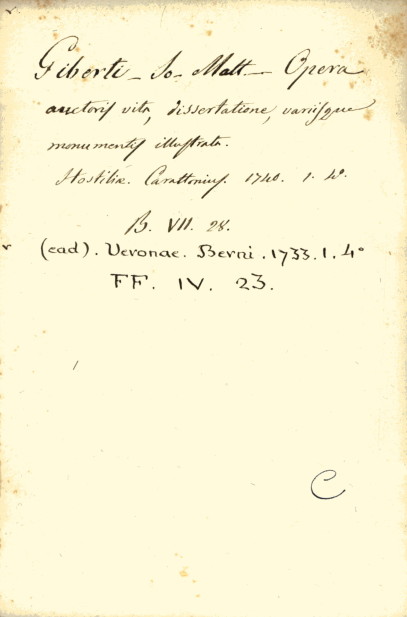 Giberti - Jo - Matt - Opera
auctoris vita, dissertatione, variisque
monumentis illustrata.
Hostiliæ. Carattonius. 1740. 1. 4°.
B. VII. 28.
(ead). Veronae. Berni. 1733. 1. 4°
FF. IV. 23.
C